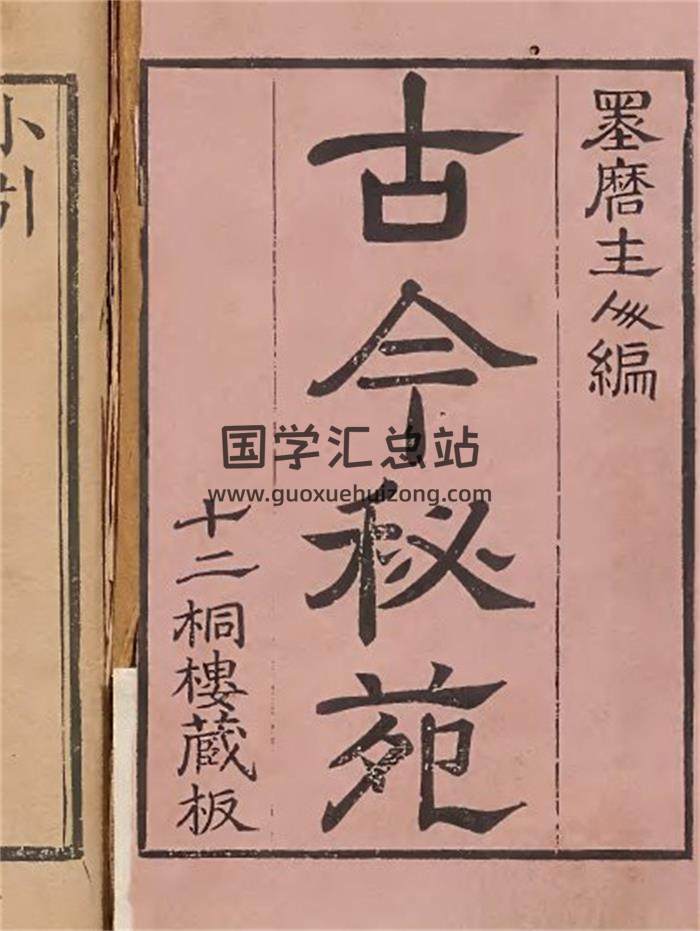 墨磨主人編
古今秘苑
十二桐樓蔵板
小引
国学汇总站
www.guoxuehuizong.com